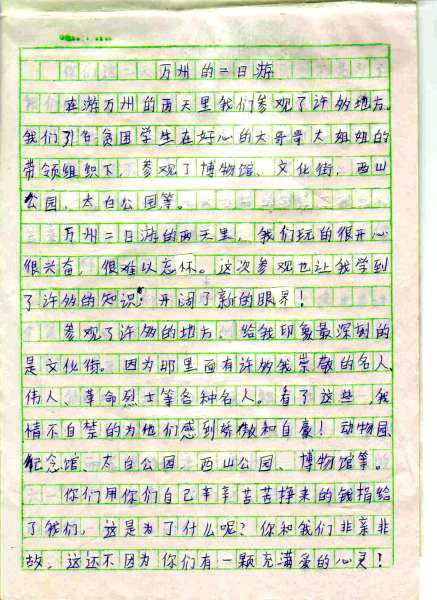 万州的二日游
在游万州的两天里我们参观了许多地方。
我们引名贫困学生在好心的大哥哥大姐姐的
带领组织下，参观了博物馆、文化街、西山
公园，太白公园等。
万州二日游的两天里，我们玩的很开心
很兴奋，很难以忘怀。这次参观也让我学到
了许多的知识，开阔了新的眼界！
参观了许多的地方，给我印象最深刻的
是文化街。因为那里面有许多我崇敬的名人、
伟人、革命烈士等各种名人。看了这些，我
情不自禁的为他们感到骄傲和自豪！动物园、
纪念馆、太白公园、西山公园、博物馆等。
你们用你们自己辛辛苦苦挣来的钱捐给
了我们，这是为了什么呢？你和我们非亲非
故，这还不因为你们有一颗充满爱的心灵！